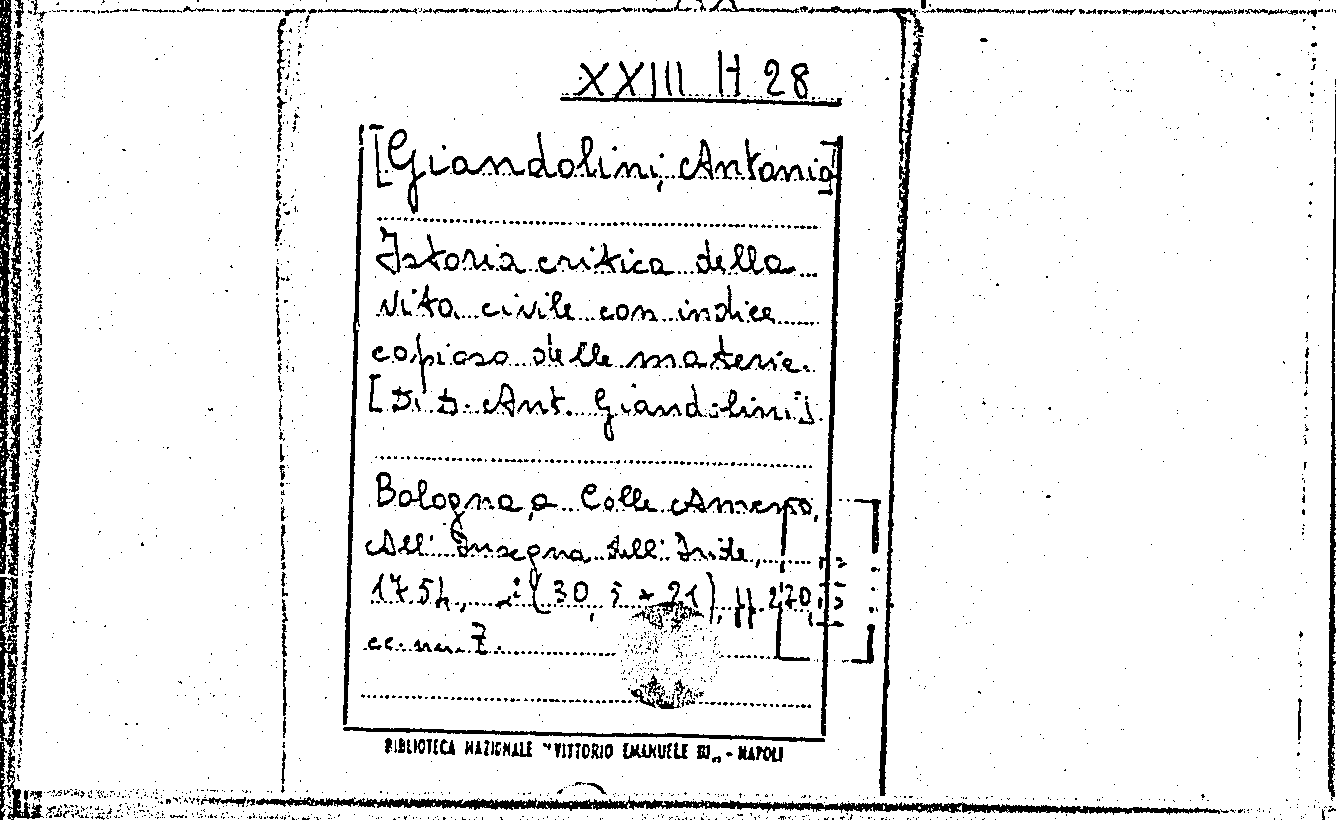 XXIII H 28
[Giandolini, Antonio]
Istoria critica della
vita civile con indice
copioso delle materie.
[Di D. Ant. Giandolini].
Bologna, a Colle Ameno,
All' Insegna dell' Iride,
(30, 5 × 21), pp. 270,
cc. nn. 7.
BIBLIOTECA NAZIONALE "VITTORIO EMANUELE III„ - NAPOLI